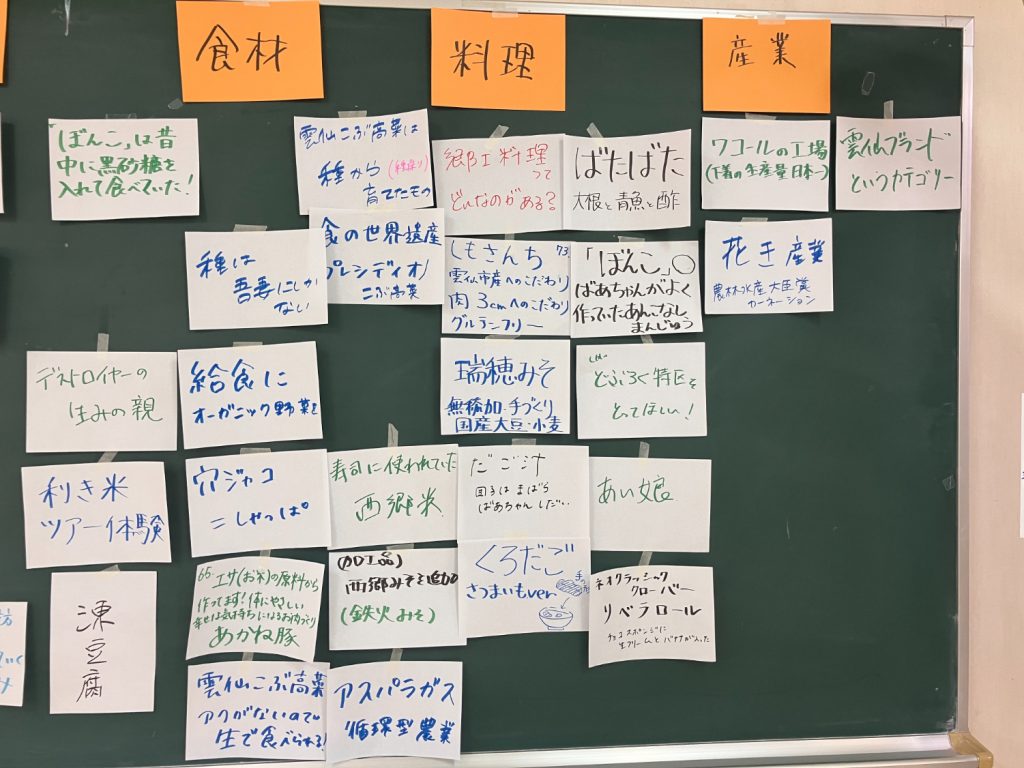 食材
料理
産業
「ぼんこ」は昔
中に黒砂糖を
入れて食べていた!
雲仙こぶ高菜は
種から(種採り)
育てたもの
郷土料理
って
どんなのがある?
ばたばた
大根と青魚と酢
ワコールの工場
(下着の生産量日本一)
雲仙ブランド
というカテゴリー
種は
吾妻にしか
ない
食の世界遺産
プレシディオ
こぶ高菜
しもさんち 73
雲仙市産へのこだわり
肉3cmへのこだわり
グルテンフリー
「ぼんこ」○
ばあちゃんがよく
作っていたあんこなし
まんじゅう
花き産業
農林水産大臣賞
カーネーション
デストロイヤーの
生みの親
給食に
オーガニック野菜を
瑞穂みそ
無添加・手づくり
国産大豆・小麦
どぶろく特区を
とってほしい!
利き米
ツアー体験
穴ジャコ
=しゃっぱ
寿司に使われていた
西郷米
だご汁
団子はまばら
ばあちゃんしだい
あい娘
凍豆腐
65 エサ(お米)の原料から
作ってます!体にやさしい
あかね豚
(加工品)
西郷みそを追加
(鉄火みそ)
くろだご
さつまいもver
ネオクラッシック
クローバー
リベラロール
チョコスポンジに
生クリームとバナナが入った
雲仙こぶ高菜
アクがないので
生で食べられる!
アスパラガス
循環型農業